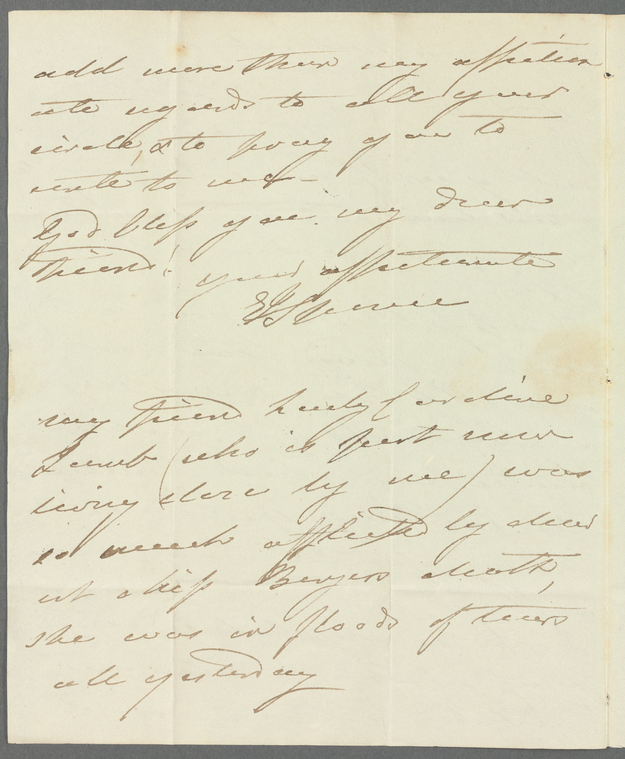 add more than my affection
ate regards to all your
circle, & to pray you to
write to me—
God bless you my dear
Friend! your affectionate
EISpence
my Friend Lady Caroline
Lamb (who is just now
living close by me) was
so much afflicted by dear
est Miss Bengers death,
she was in floods of tears
all yesterday